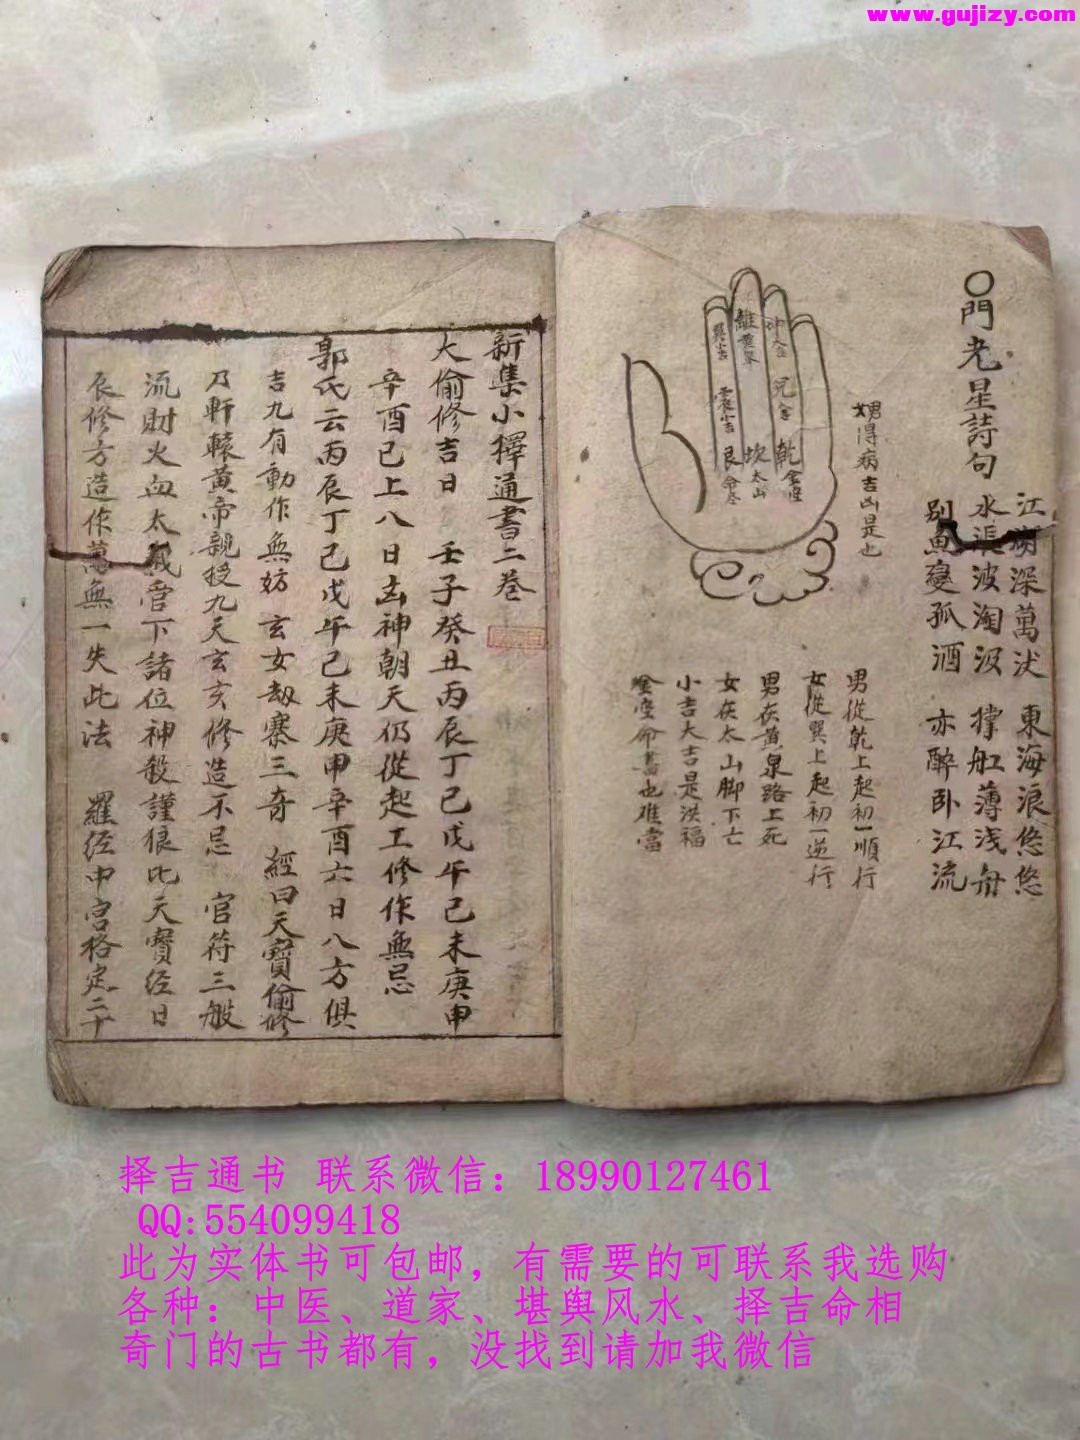 www.gujizy.com
〇門光星詩句
江湖深萬汱 東海浪悠悠
水漲波淘汲 撑舡薄浅舟
别魚變孤酒 亦醉卧江流
男女得病吉凶是也
離黄泉
巽小吉
兑金
震小吉
乾金
坎太山
艮
男從乾上起初一順行
女從巽上起初一逆行
男在黄泉路上死
女在太山脚下亡
小吉大吉是洪福
命書也难當
新集小擇通書二卷
大偷修吉日 壬子癸丑丙辰丁巳戊午己未庚申
辛酉已上八日凶神朝天仍從起工修作無忌
郭氏云丙辰丁巳戊午己未庚申辛酉六日八方俱
吉九有動作無妨 玄女劫寨三奇 經曰天寶偷修
乃軒轅黄帝親授九天玄亥修造不忌 官符三般
流財火血太歲管下諸位神殺謹狼比天寶经日
辰修方造作萬無一失此法 羅经中宫格定二十
择吉通书 联系微信：18990127461
QQ:554099418
此为实体书可包邮，有需要的可联系我选购
各种：中医、道家、堪舆风水、择吉命相
奇门的古书都有，没找到请加我微信